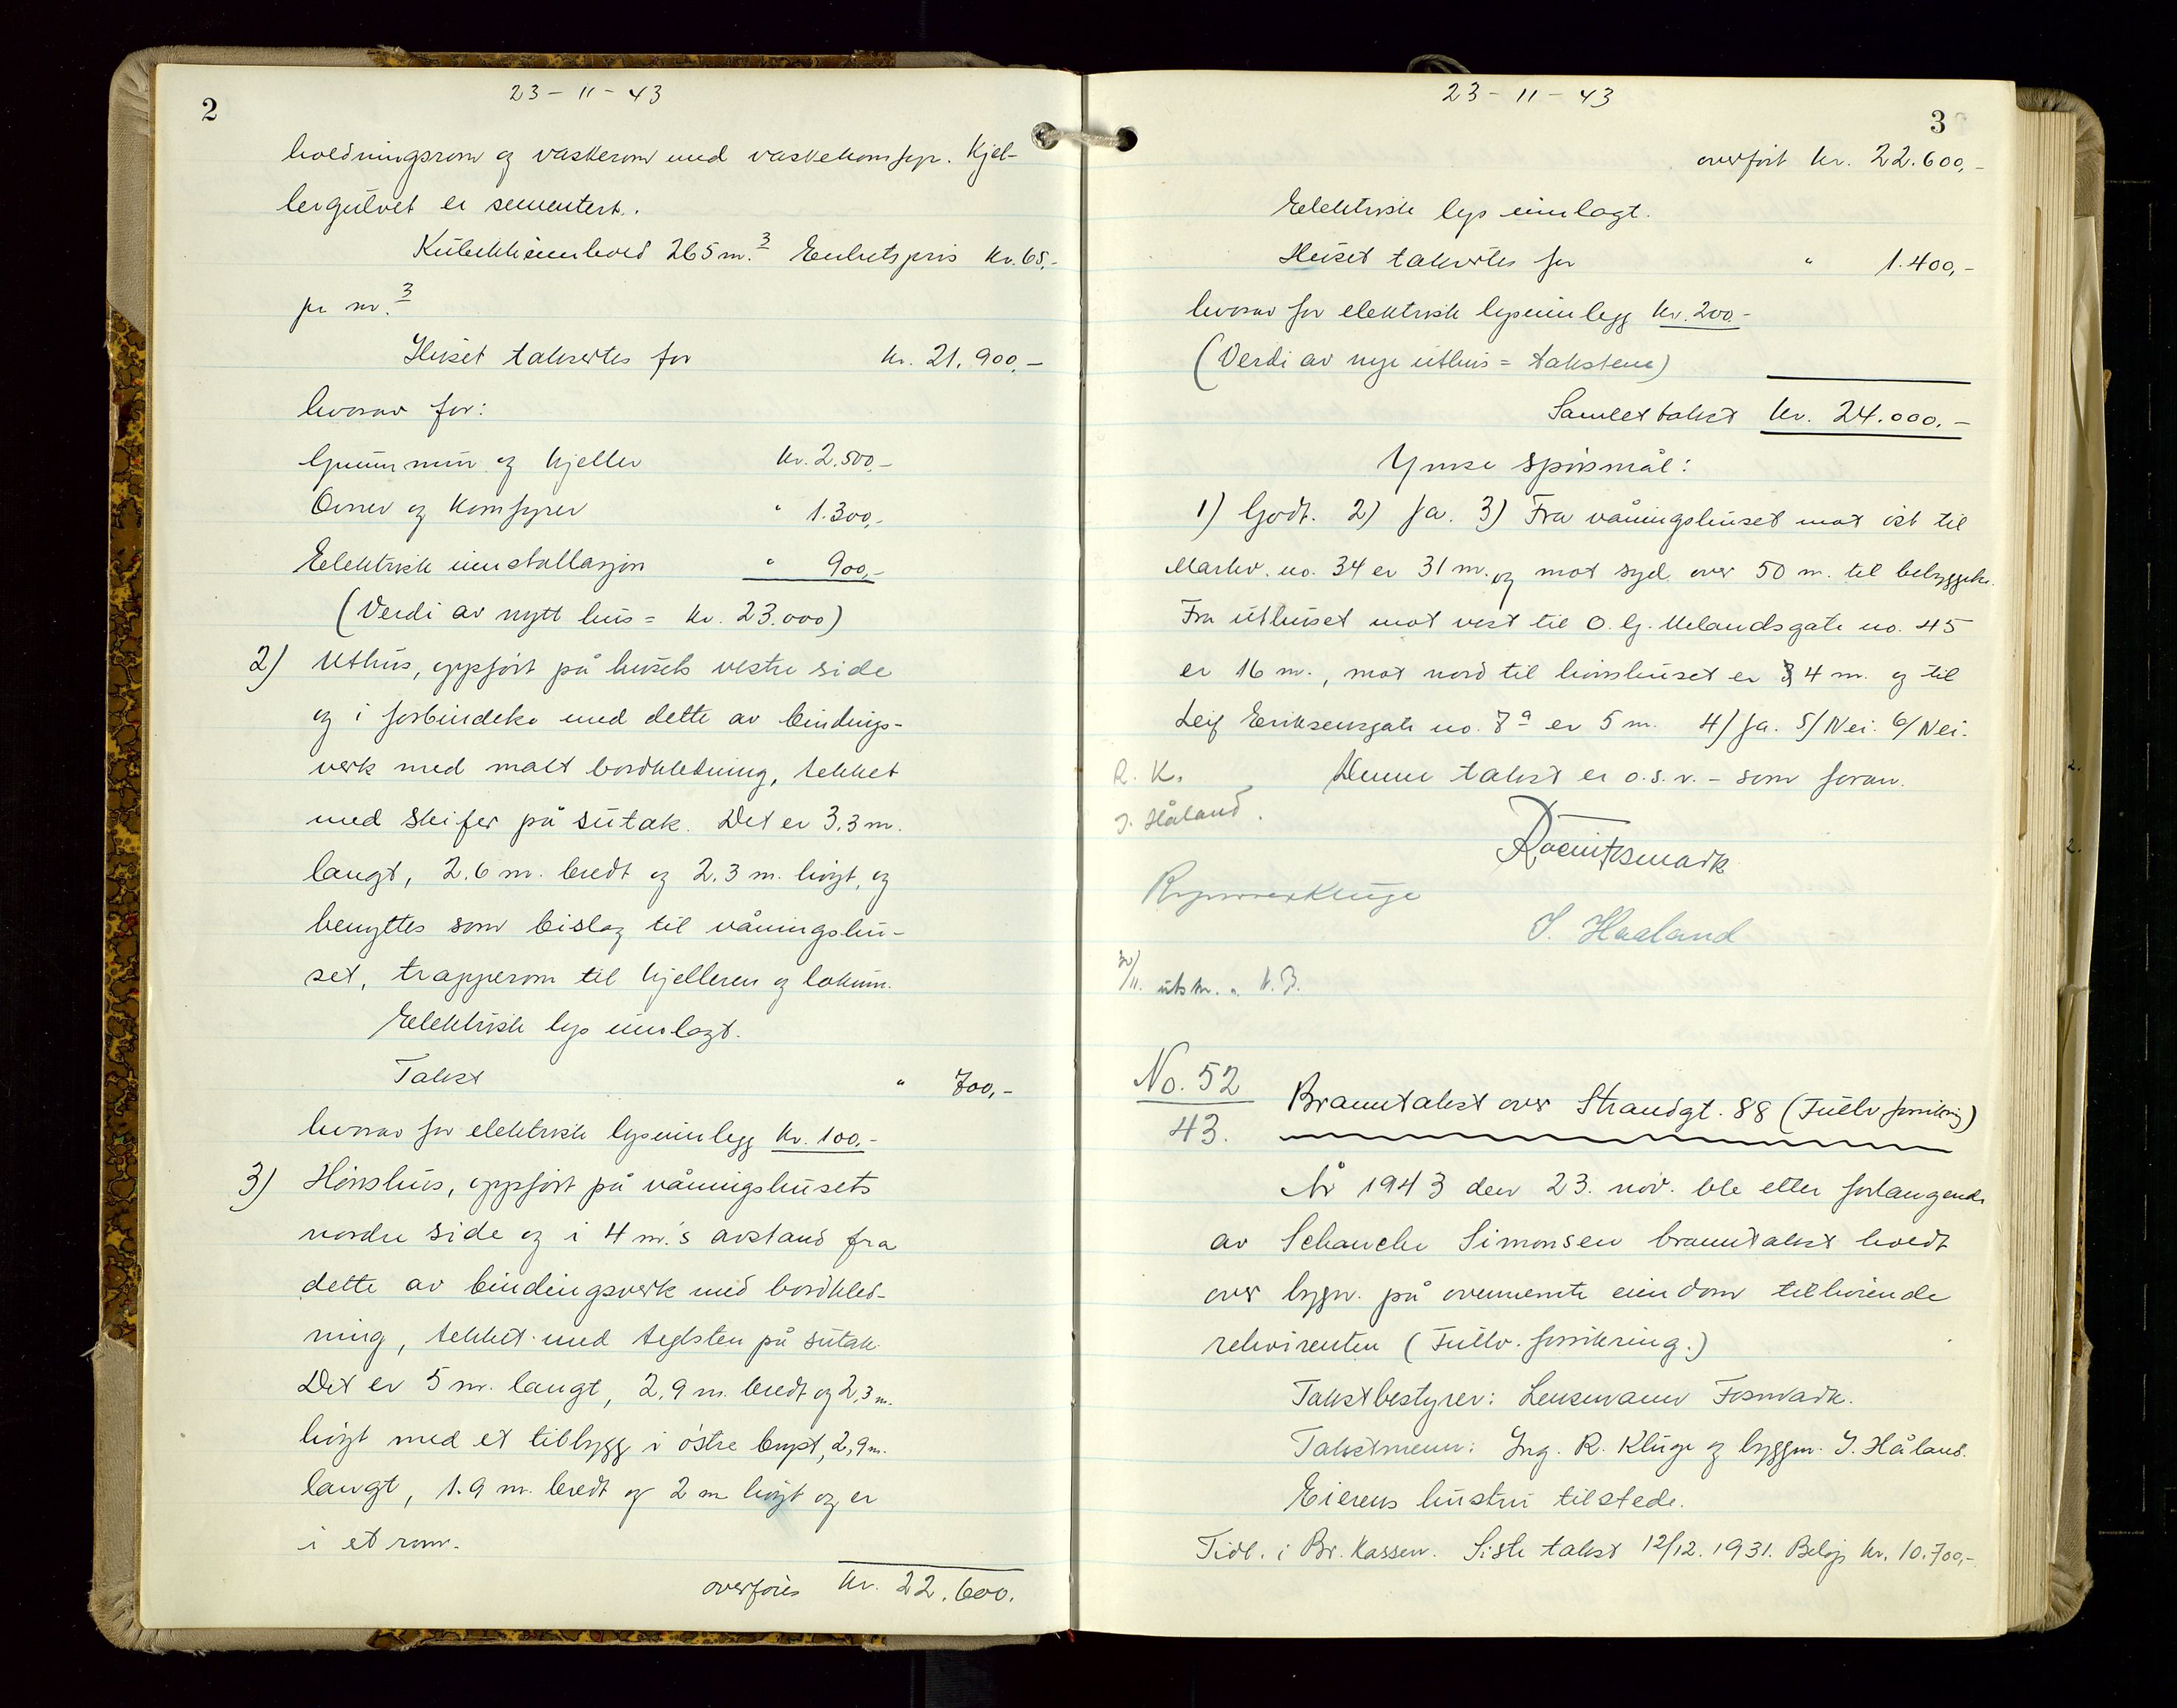 2
23-11-43
holdningsrom og vaskerom med vaskekomfyr. Kjel-
lergulvet er sementert.
Kubikkinnhold 265 m.³ Enhetspris kr. 65,-
pr m.³
Huset takserter for kr. 21.900,-
hvorav for:
Grunnmur og kjeller kr. 2.500,-
Ovner og komfyrer " 1.300,-
Elektrisk innstallasjon " 900,-
(Verdi av nytt hus = kr. 23.000)
2) Uthus, oppført på husets vestre side
og i forbindelse med dette av bindings-
verk med malt bordkledning, tekket
med skifer på sutak. Det er 3.3 m.
langt, 2.6 m. bredt og 2.3 m. høgt, og
benyttes som bislag til våningshu-
set, trapperom til kjelleren og lokum.
Elektrisk lys innlagt.
Takst " 700,-
hvorav for elektrisk lysinnlegg kr. 100,-
3) Hønshus, oppført på våningshusets
nordre side og i 4 m.'s avstand fra
dette av bindingsverk med bordkled-
ning, tekket med teglsten på sutak.
Det er 5 m. langt, 2,9 m. bredt og 2,3 m.
høgt med et tilbygg i østre knapt, 2,9 m.
langt, 1.9 m. bredt og 2 m høgt og er
i et rom.
overføres kr. 22.600.
23-11-43
3
overført kr. 22.600,-
Elektrisk lys innlagt.
Huset takserter for " 1.400,-
hvorav for elektrisk lysinnlegg kr. 200.-
(Verdi av nye uthus = takstene)
Samlet takst kr. 24.000.-
Ymse spørsmål:
1) Godt. 2) Ja. 3) Fra våningshuset mot øst til
Markv. no. 34 er 31 m. og mot syd over 50 m. til bebyggelse.
Fra uthuset mot vest til O. G. Melandsgate no. 45
er 16 m., mot nord til hønshuset er 4 m. og til
Leif Eriksensgate no. 7ª er 5 m. 4/ Ja. 5/ Nei. 6/ Nei.
R. K. Denne takst er o.s.v. - som foran.
J. Håland.
Fosmark
Kluge
J. Haaland
30/11. utskr. " K. J.
No. 52
43.
Branntakst over Strandgt. 88 (Fullv forsikring)
År 1943 den 23. nov. ble etter forlangende
av Schanche Simonsen branntakst holdt
over bygn. på ovennemte eiendom tilhørende
rekvirenten (Fullv. forsikring.)
Takstbestyrer: Lensmann Fosmark.
Takstmenn: Ing. R. Kluge og byggm. J. Håland.
Eierens hustru tilstede.
Tidl. i Br. Kassen. Siste takst 12/12. 1931. Beløp kr. 10.700,-